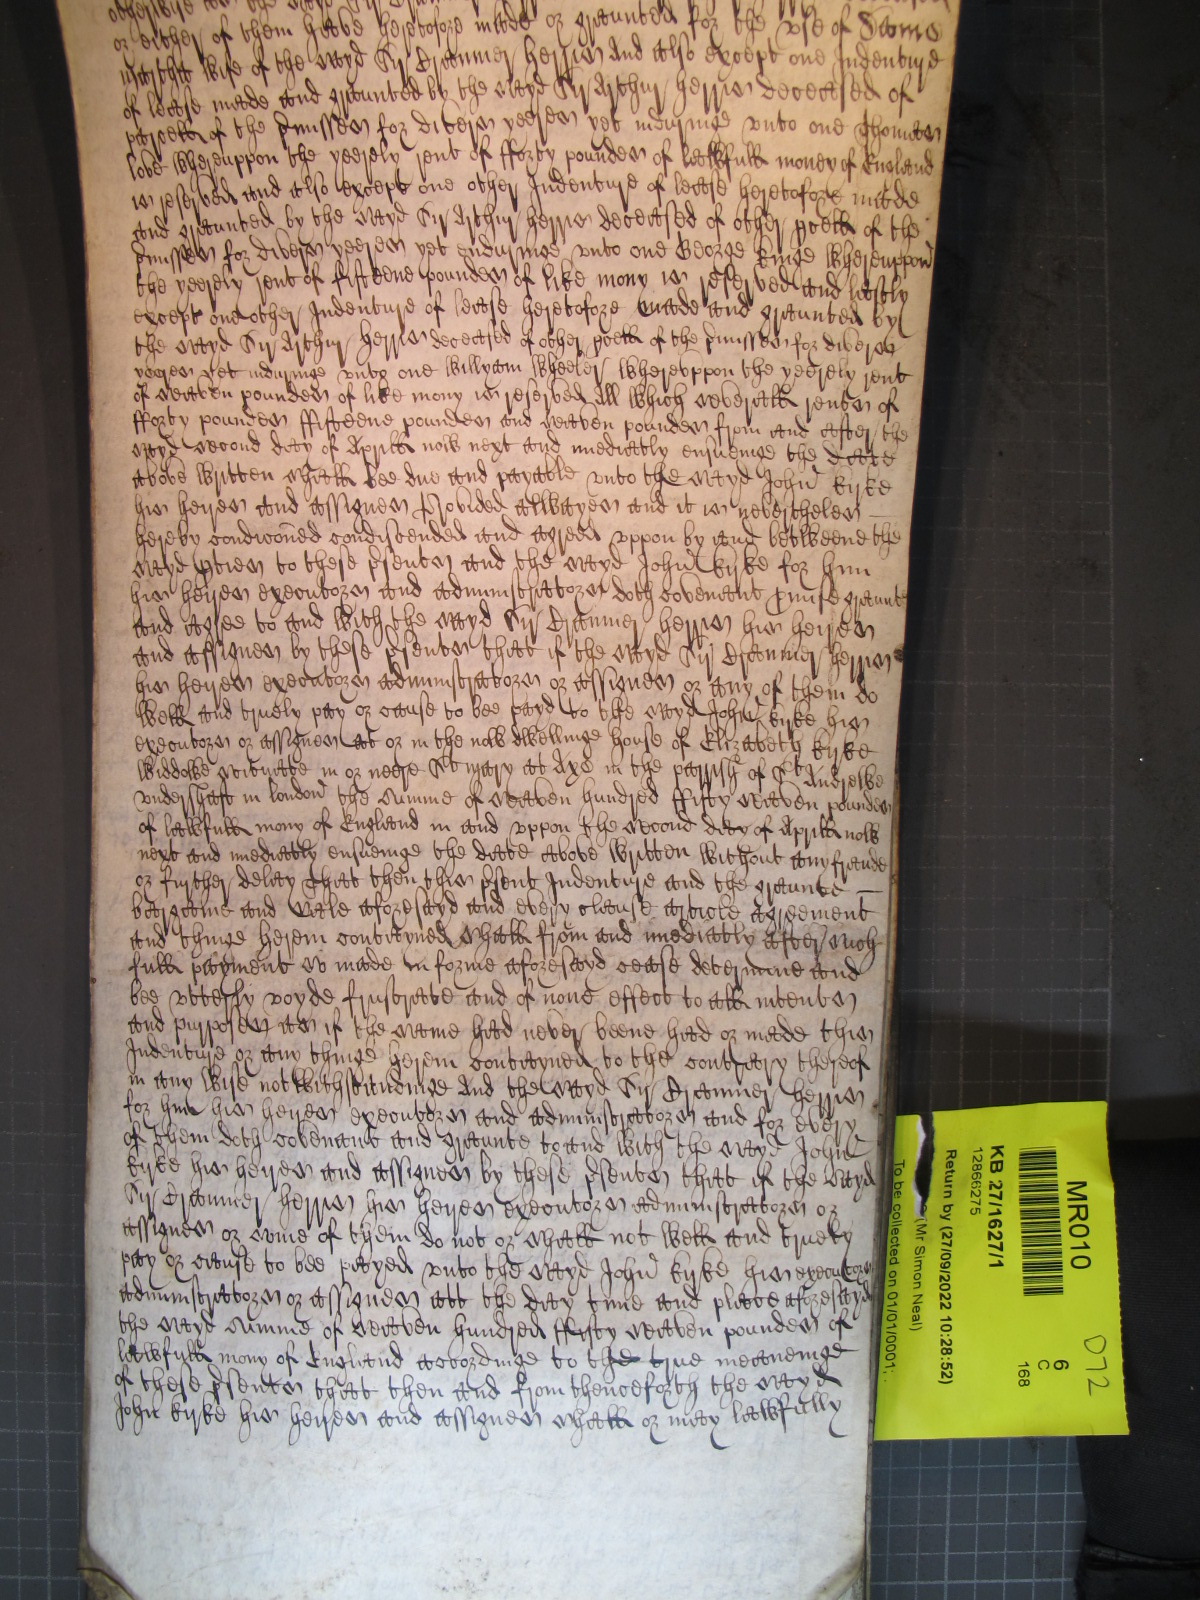 or either of them have heretofore made or graunted for the use of Dame
wife of the sayd Sir Cranmer Herris And also except one Indenture
of lease made and graunted by the sayd Sir Arthur Herris deceased of
parcell of the pmisses for divers yeeres yet induringe unto one Thomas
love whereuppon the yeerely rent of fforty poundes of lawfull money of England
is reserved and also except one other Indenture of lease heretofore made
and graunted by the sayd Sir Arthur Herris deceased of other pcell of the
pmisses for divers yeeres yet enduringe unto one George Kinge whereuppon
the yeerely rent of fifteene poundes of like mony is reserved and lastly
except one other Indenture of lease heretofore made and graunted by
the sayd Sir Arthur Herris deceased of other pcell of the pmisses for divers
yeeres yet induringe unto one Willyam Wheeler whereuppon the yeerely rent
of seaven poundes of like mony is reserved All which severall rentes of
fforty poundes ffifteene poundes and seaven poundes from and after the
sayd second day of Aprill now next and imediatly ensueinge the date
above written shall bee due and payable unto the sayd John Kyrke
his heires and assignes Provided allwayes and it is neverthelesse
hereby condiconed condiscended and agreed uppon by and betweene the
sayd pties to these psentes and the sayd John Kyrke for him
his heires executors and administrators doth covenant pmise graunte
and agree to and with the sayd Sir Cranmer Herris his heires
and assignes by these psentes that if the sayd Sir Cranmer Herris
his heires executors administrators or assignes or any of them do
well and truely pay or cause to bee payd to the sayd John Kyrke his
executors or assignes at or in the now dwellinge house of Elizabeth Kyrke
widdowe scituate in or neere St Mary at Axe in the parrish of St Andrewe
undershaft in London the summe of seaven hundred ffifty seaven poundes
of lawfull mony of England in and uppon the second day of Aprill now
next and imediatly ensueinge the date above written without any fraude
or further delay That then this psent Indenture and the graunte
bargaine and sale aforesayd and every clause article agreement
and thinge herein contayned shall from and imediatly after such
full payment so made in forme aforesayd cease determine and
bee utterly voyde frustrate and of none effect to all intentes
and purposes as if the same had never beene had or made this
Indenture or any thinge herein contayned to the contrary thereof
in any wise notwithstandinge And the sayd Sir Cranmer Herris
for him his heires executors and administrators and for every
of them doth covenant and graunte to and with the sayd John
Kyrke his heires and assignes by these psentes that if the sayd
Sir Cranmer Herris his heires executors administrators or
assignes or some of them do not or shall not well and truely
pay or cause to bee payed unto the sayd John Kyrke his executors
administrators or assignes att the day time and place aforesayd
the sayd summe of seaven hundred ffifty seaven poundes of
lawfull mony of England accordinge to the true meaneinge
of these psentes that then and from thenceforth the sayd
John Kyrke his heires and assignes shall or may lawfully
MR010
KB 27/1627/1
12866275
Return by (27/09/2022 10:28:52)
(Mr Simon Neal)
To be collected on 01/01/0001
6
C
168
D72